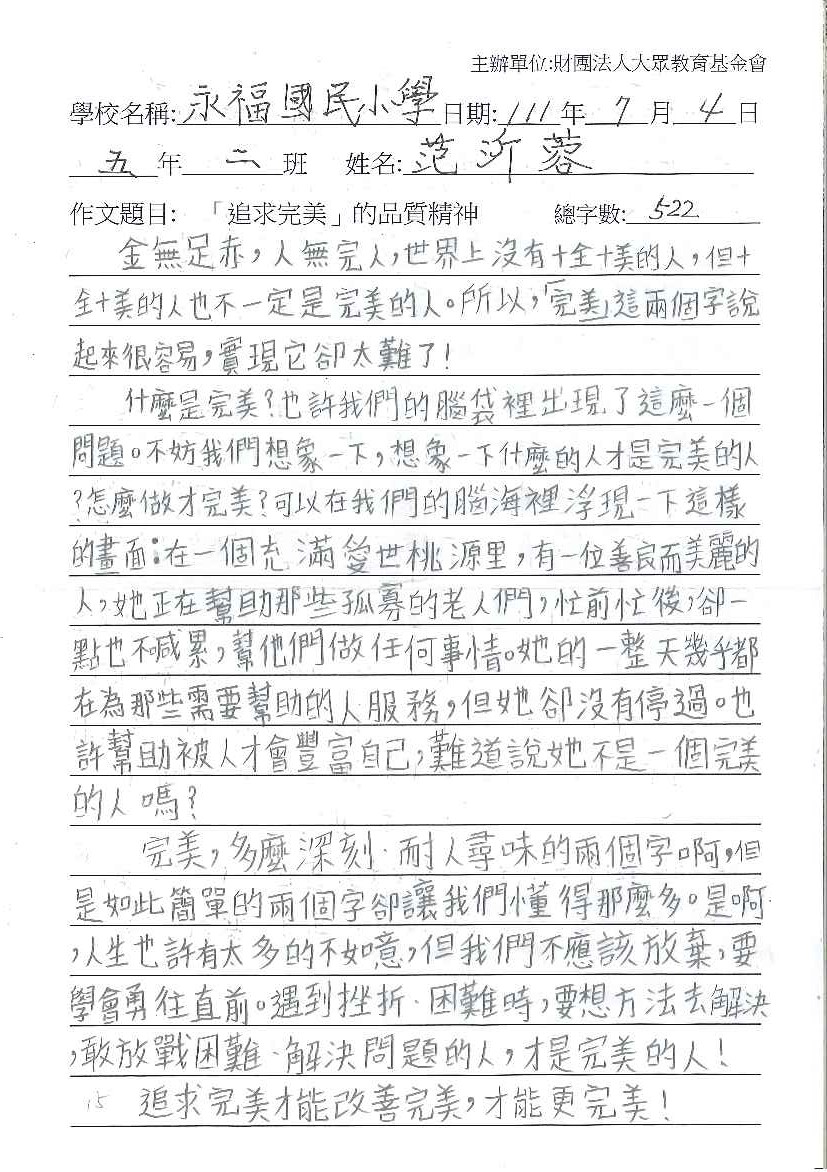 主辦單位:財團法人大眾教育基金會
學校名稱:永福國民小學日期:111年7月4日
五年二班 姓名:范沂蓉
作文題目: 「追求完美」的品質精神 總字數:522
金無足赤,人無完人,世界上沒有十全十美的人,但十
全十美的人也不一定是完美的人。所以,「完美」這兩個字說
起來很容易,實現它卻太難了!
什麼是完美?也許我們的腦袋裡出現了這麼一個
問題。不妨我們想象一下,想象一下什麼的人才是完美的人
?怎麼做才完美?可以在我們的腦海裡浮現一下這樣
的畫面:在一個充滿愛世桃源里,有一位善良而美麗的
人,她正在幫助那些孤寡的老人們,忙前忙後,卻一
點也不喊累,幫他們做任何事情。她的一整天幾乎都
在為那些需要幫助的人服務,但她卻沒有停過。也
許幫助被人才會豐富自己,難道說她不是一個完美
的人嗎?
完美,多麼深刻、耐人尋味的兩個字啊,但
是如此簡單的兩個字卻讓我們懂得那麼多。是啊
,人生也許有太多的不如意,但我們不應該放棄,要
學會勇往直前。遇到挫折、困難時,要想方法去解決
,敢放戰困難、解決問題的人,才是完美的人!
15 追求完美才能改善完美,才能更完美!